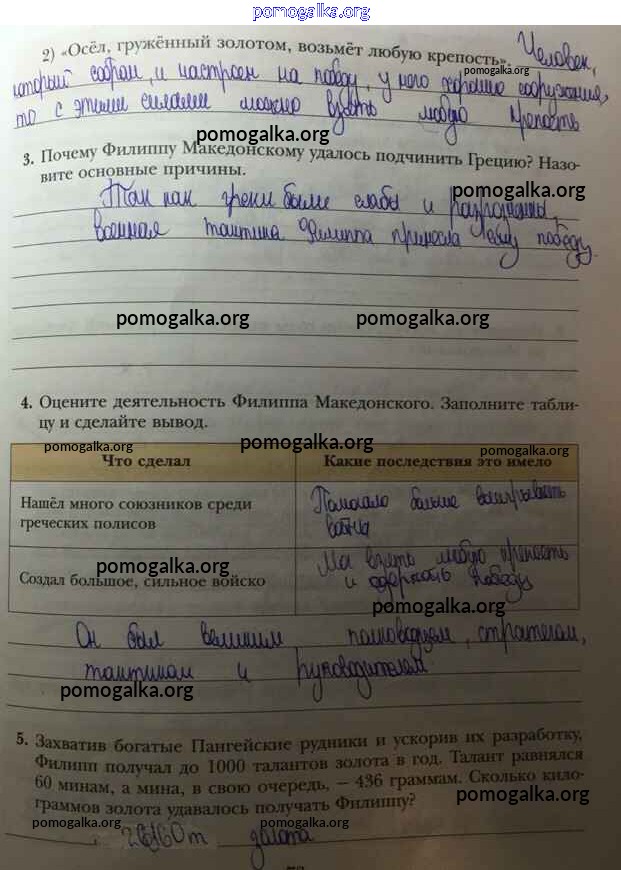 pomogalka.org
2) «Осёл, гружённый золотом, возьмёт любую крепость». Человек,
pomogalka.org
который собран, и настроен на победу, у него хорошие сооружения,
то с этими силами можно взять любую крепость
pomogalka.org
3. Почему Филиппу Македонскому удалось подчинить Грецию? Назо-
вите основные причины.
pomogalka.org
Так как греки были слабы и разрознены,
военная тактика Филиппа принесла ему победу.
pomogalka.org pomogalka.org
4. Оцените деятельность Филиппа Македонского. Заполните табли-
цу и сделайте вывод.
pomogalka.org pomogalka.org pomogalka.org
Что сделал Какие последствия это имело
Нашёл много союзников среди
греческих полисов
Помогало больше выигрывать
войны
pomogalka.org
Создал большое, сильное войско
Мог взять любую крепость
и одержать победу
pomogalka.org
Он был великим полководцем, стратегом,
тактиком и руководителем.
pomogalka.org
5. Захватив богатые Пангейские рудники и ускорив их разработку,
Филипп получал до 1000 талантов золота в год. Талант равнялся
60 минам, а мина, в свою очередь, – 436 граммам. Сколько кило-
граммов золота удавалось получать Филиппу?
pomogalka.org
pomogalka.org pomogalka.org pomogalka.org
золота